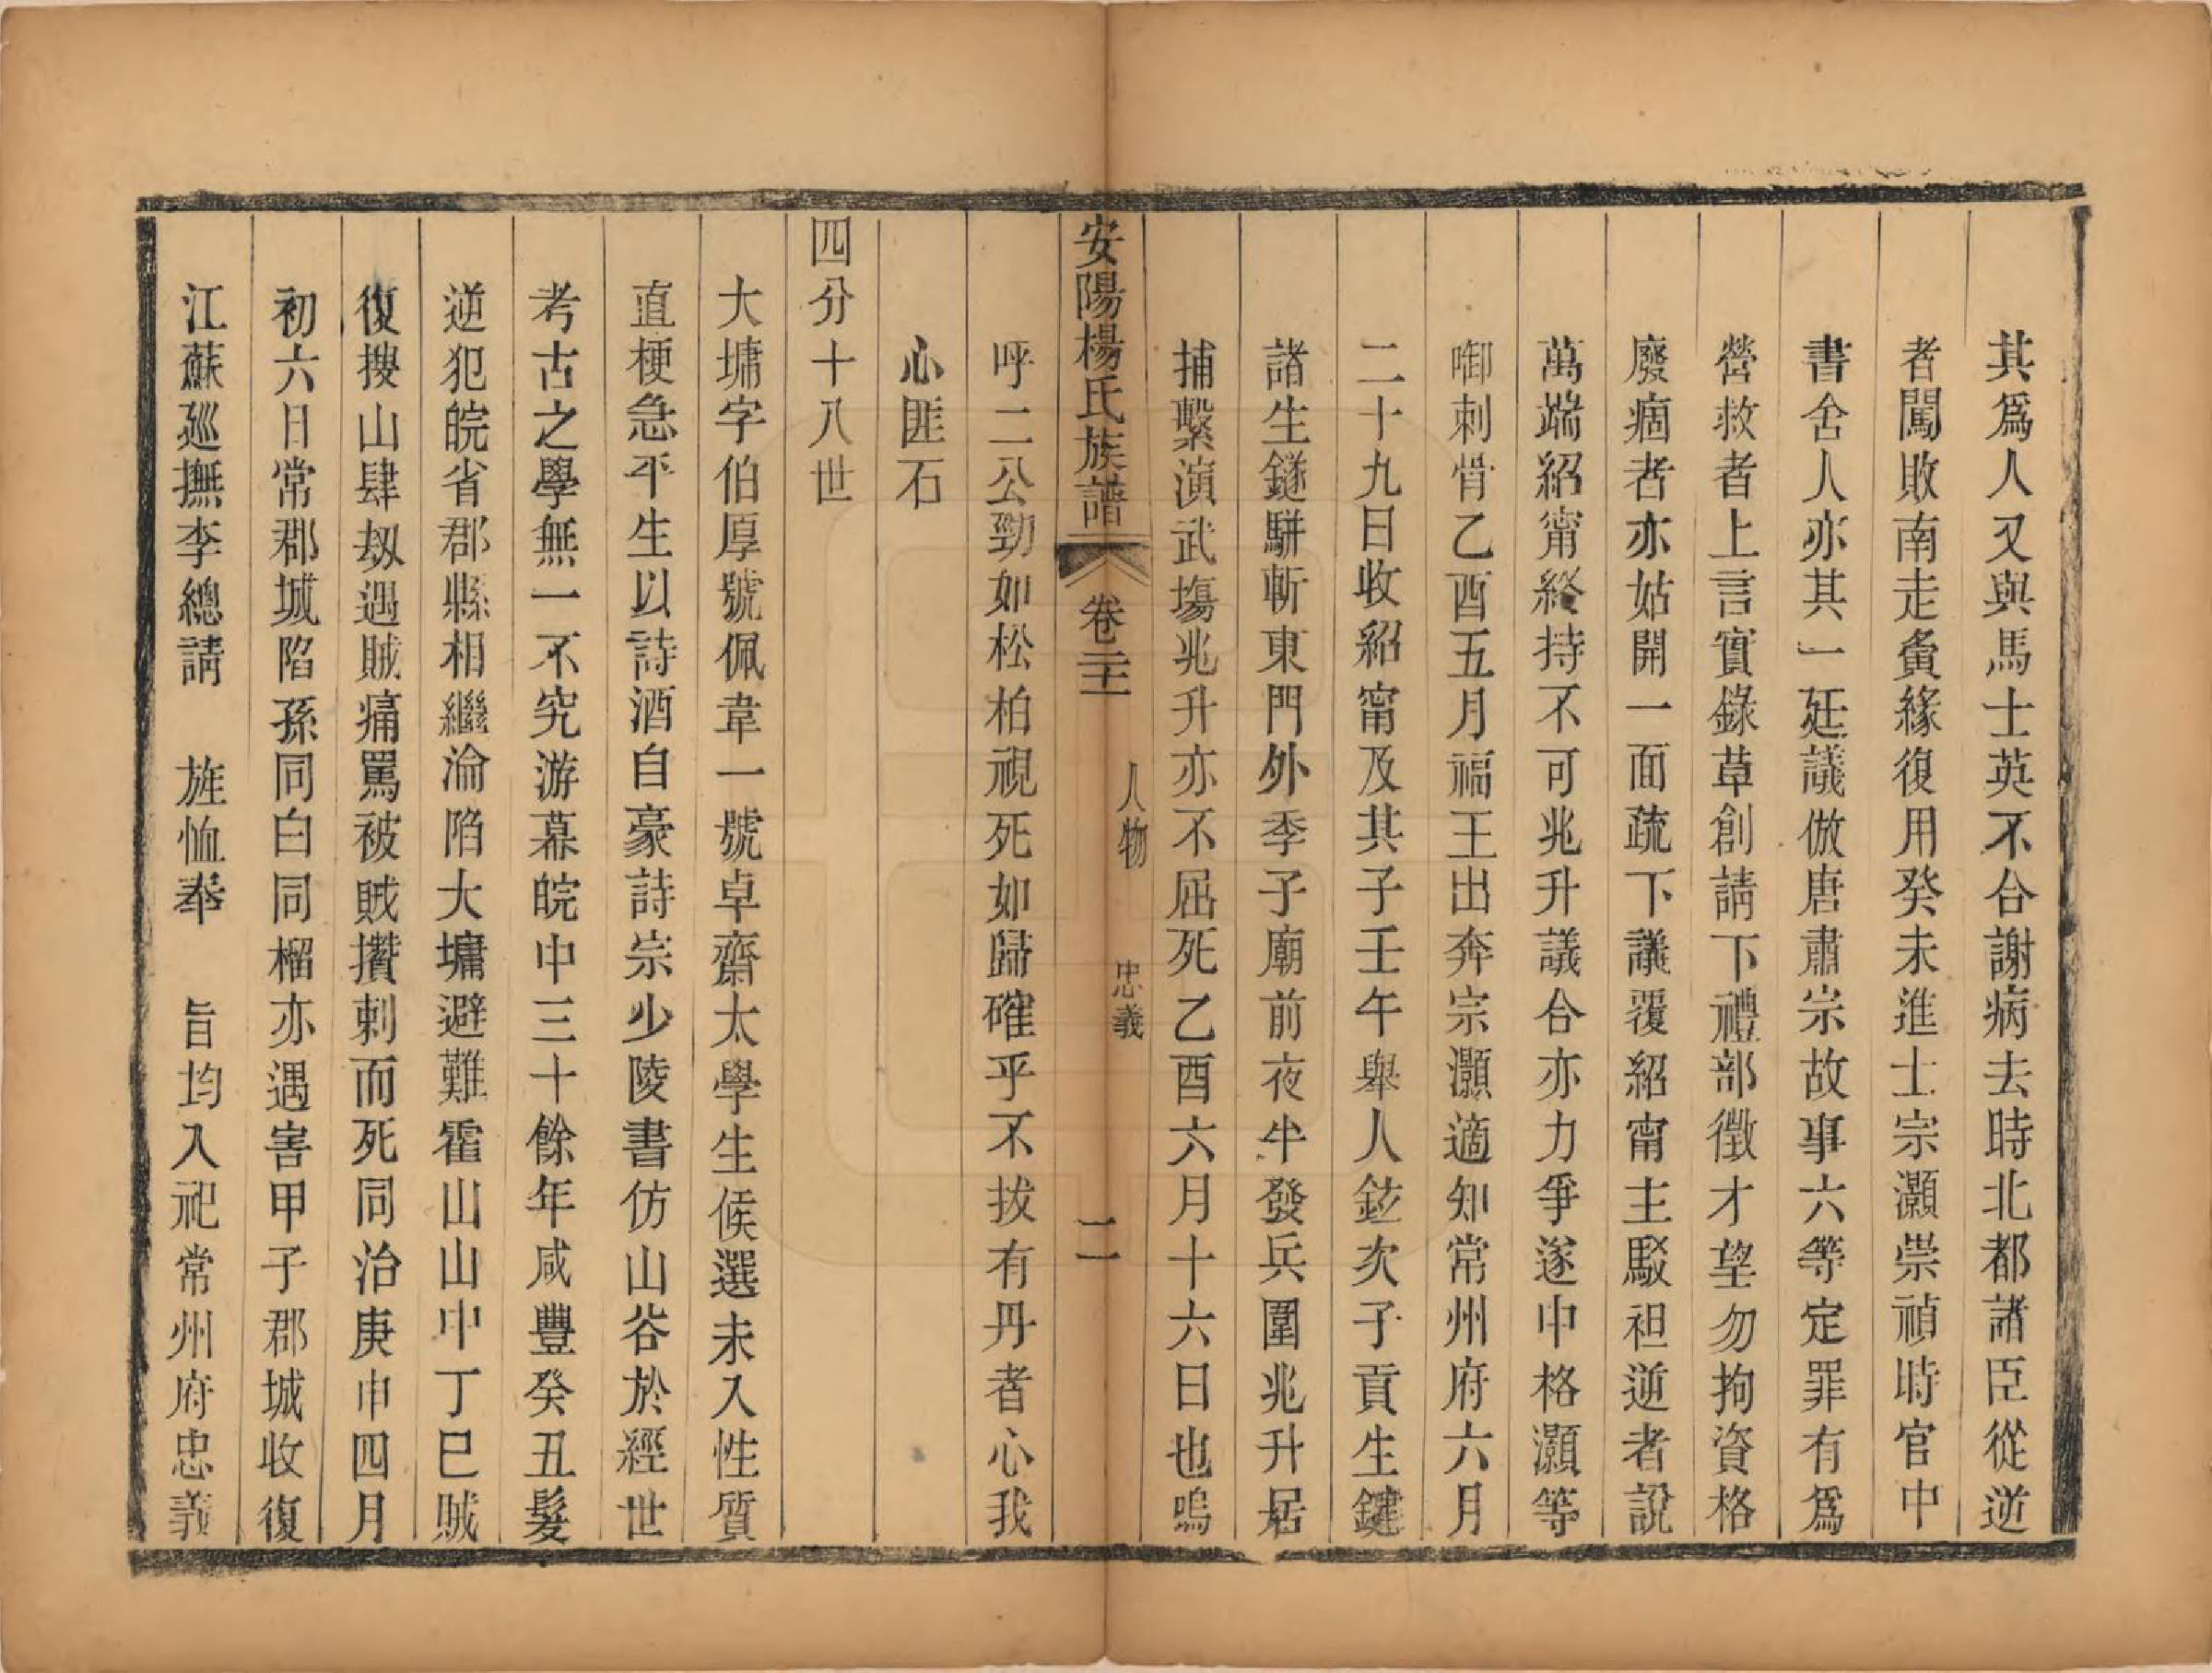 其爲人又與馬士英不合謝病去時北都諸臣從逆
者闖敗南走夤緣復用癸未進士宗灝崇禎時官中
書舍人亦其一廷議倣唐肅宗故事六等定罪有爲
營救者上言實錄草創請下禮部徵才望勿拘資格
廢痼者亦姑開一面疏下議覆紹甯主駁袒逆者說
萬端紹甯終持不可兆升議合亦力爭遂中格灝等
啣刺骨乙酉五月福王出奔宗灝適知常州府六月
二十九日收紹甯及其子壬午舉人鉉次子貢生鍵
諸生鐩駢斬東門外季子廟前夜半發兵圍兆升居
捕繫演武塲兆升亦不屈死乙酉六月十六日也嗚
安陽楊氏族譜 卷二十一 人物 忠義 二
呼二公勁如松柏視死如歸確乎不拔有丹者心我
心匪石
四分十八世
大墉字伯厚號佩韋一號卓齋太學生候選未入性質
直梗急平生以詩酒自豪詩宗少陵書仿山谷於經世
考古之學無一不究游幕皖中三十餘年咸豐癸丑髮
逆犯皖省郡縣相繼淪陷大墉避難霍山山中丁巳賊
復搜山肆刼遇賊痛罵被賊攢刺而死同治庚申四月
初六日常郡城陷孫同白同榴亦遇害甲子郡城收復
江蘇廵撫李總請 旌恤奉 旨均入祀常州府忠義